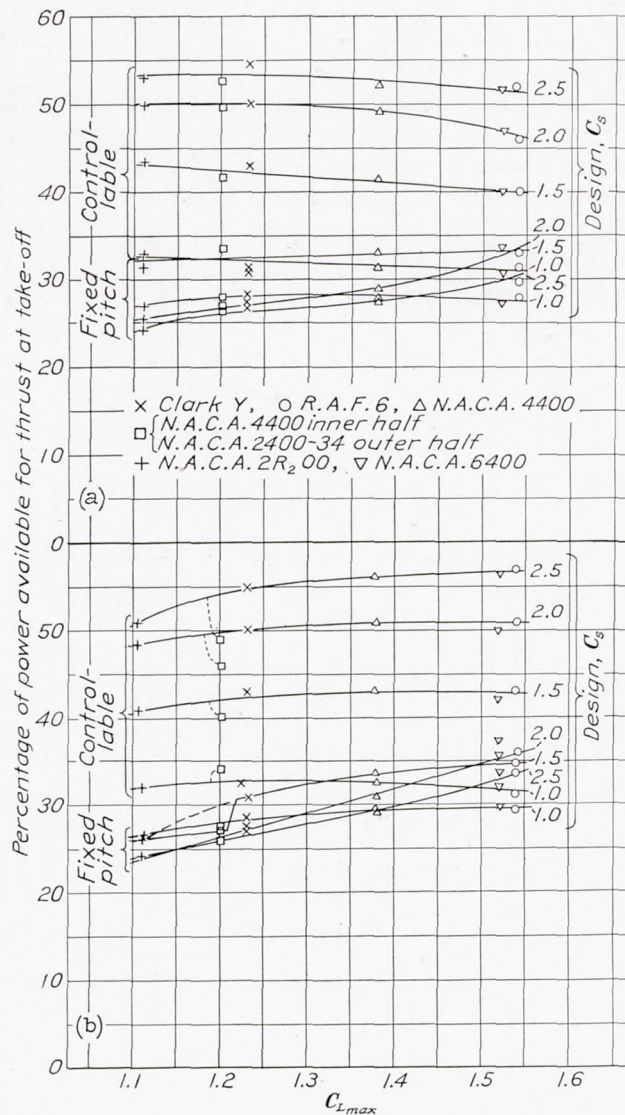 Percentage of power available for thrust at take-off
60
50
40
30
20
10
0
Controllable
Fixed pitch
2.5
2.0
1.5
2.0
1.5
1.0
2.5
1.0
Design, Cs
× Clark Y, ○ R.A.F. 6, △ N.A.C.A. 4400
□ {N.A.C.A. 4400 inner half
N.A.C.A. 2400-34 outer half
+ N.A.C.A. 2R₂00, ▽ N.A.C.A. 6400
(a)
50
40
30
20
10
0
Control-
lable
Fixed
pitch
2.5
2.0
1.5
2.0
1.5
2.5
1.0
1.0
Design, Cs
(b)
1.1 1.2 1.3 1.4 1.5 1.6
C_Lmax